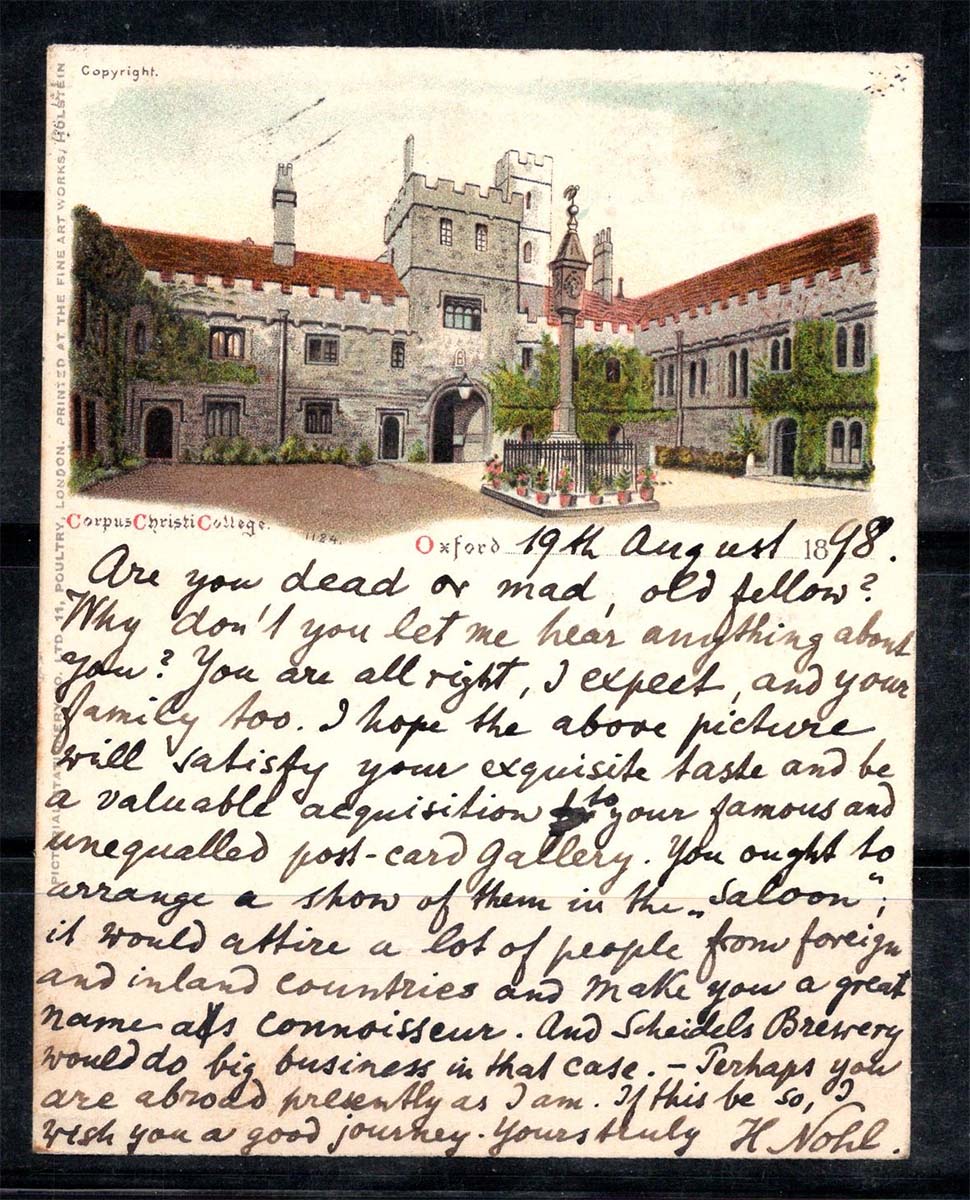 Copyright.
PICTORIAL STATIONERY CO. LTD. 11, POULTRY, LONDON. PRINTED AT THE FINE ART WORKS, HOLSTEIN
Corpus Christi College.
1124.
Oxford 19th August 1898.
Are you dead or mad, old fellow?
Why don't you let me hear anything about
you? You are all right, I expect, and your
family too. I hope the above picture
will satisfy your exquisite taste and be
a valuable acquisition to your famous and
unequalled post-card gallery. You ought to
arrange a show of them in the „Saloon“;
it would attire a lot of people from foreign
and inland countries and make you a great
name as connoisseur. And Scheidels Brewery
would do big business in that case. – Perhaps you
are abroad presently as I am. If this be so, I
wish you a good journey. Yours truly H Nohl.